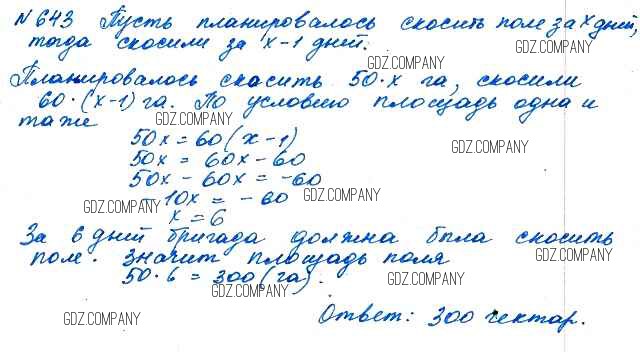 № 643 Пусть планировалось скосить поле за x дней,
тогда скосили за x-1 дней.
GDZ.COMPANY
GDZ.COMPANY
Планировалось скосить 50·x га, скосили
60·(x-1) га. По условию площадь одна и
та же
GDZ.COMPANY
50x = 60(x-1)
50x = 60x - 60
GDZ.COMPANY
50x - 60x = -60
-10x = -60
GDZ.COMPANY
GDZ.COMPANY
x = 6
За 6 дней бригада должна была скосить
поле. Значит площадь поля
GDZ.COMPANY
50·6 = 300 (га).
GDZ.COMPANY
GDZ.COMPANY
Ответ: 300 гектар.
GDZ.COMPANY
GDZ.COMPANY